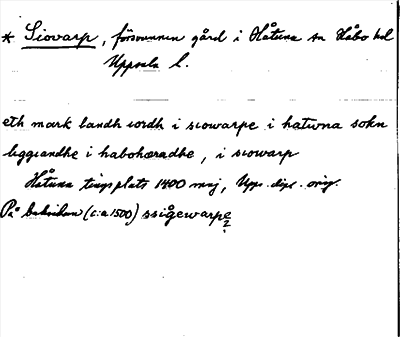 * Siowarp, försvunnen gård i Håtuna sn Håbo hd
Uppsala l.
eth mark landh iordh i siowarpe i hatwna sokn
liggiandhe i habohæradhe, i siowarp
Håtuna tingsplats 1400 maj, Upps. dipl. orig.
På baksidan (c:a 1500) ssigewarpe
?